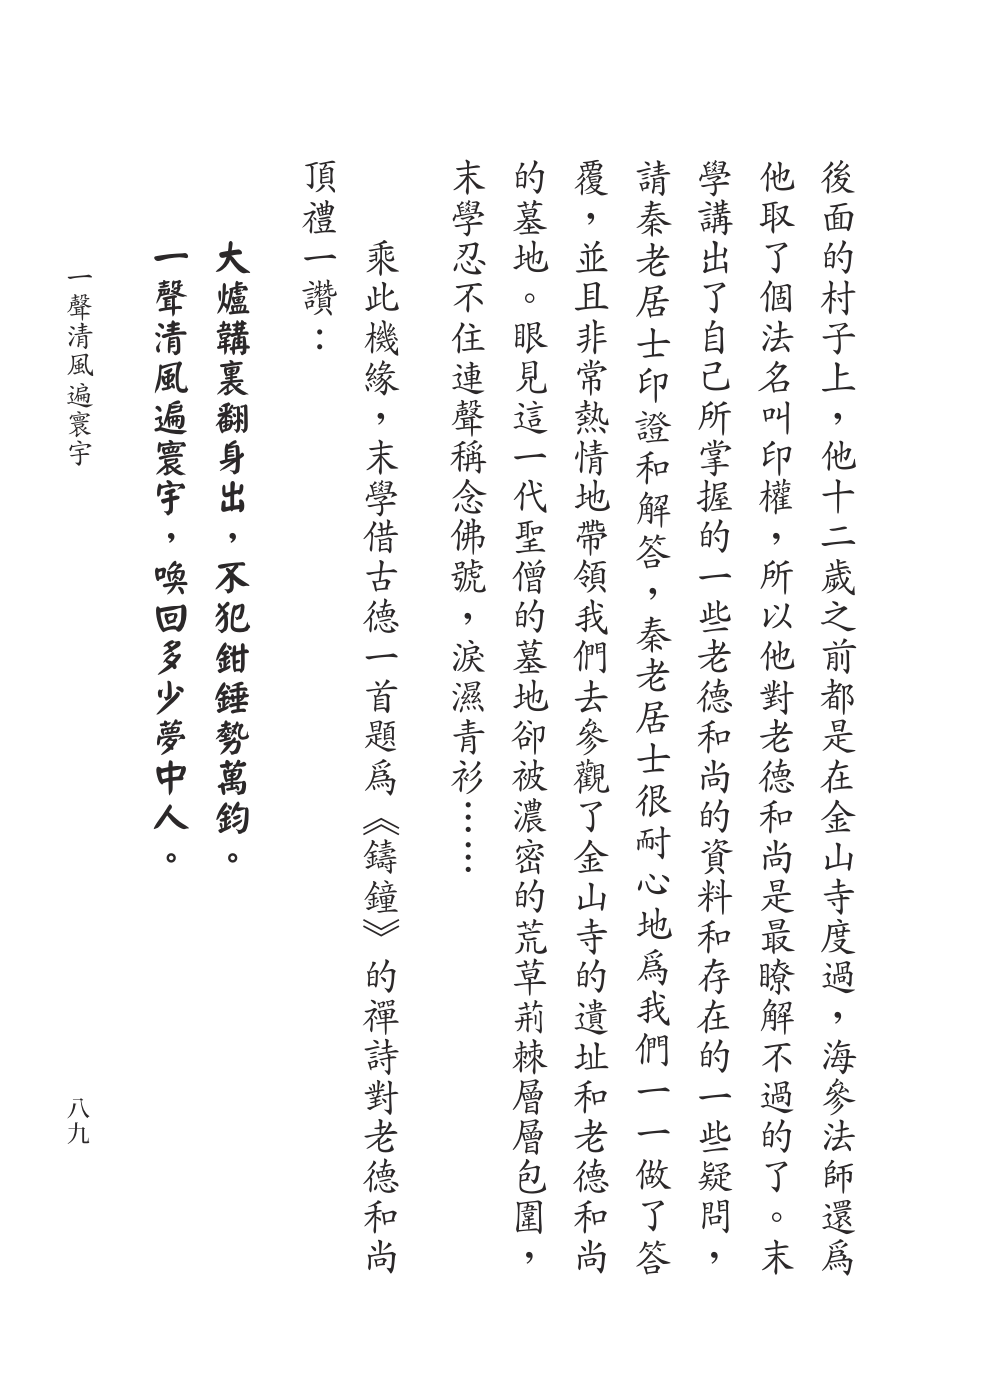 後面的村子上，他十二歲之前都是在金山寺度過，海參法師還爲
他取了個法名叫印權，所以他對老德和尚是最瞭解不過的了。末
學講出了自己所掌握的一些老德和尚的資料和存在的一些疑問，
請秦老居士印證和解答，秦老居士很耐心地爲我們一一做了答
覆，並且非常熱情地帶領我們去參觀了金山寺的遺址和老德和尚
的墓地。眼見這一代聖僧的墓地卻被濃密的荒草荊棘層層包圍，
末學忍不住連聲稱念佛號，淚濕青衫……
乘此機緣，末學借古德一首題爲《鑄鐘》的禪詩對老德和尚
頂禮一讚：
大爐韝裏翻身出，不犯鉗錘勢萬鈞。
一聲清風遍寰宇，喚回多少夢中人。
一聲清風遍寰宇
八九